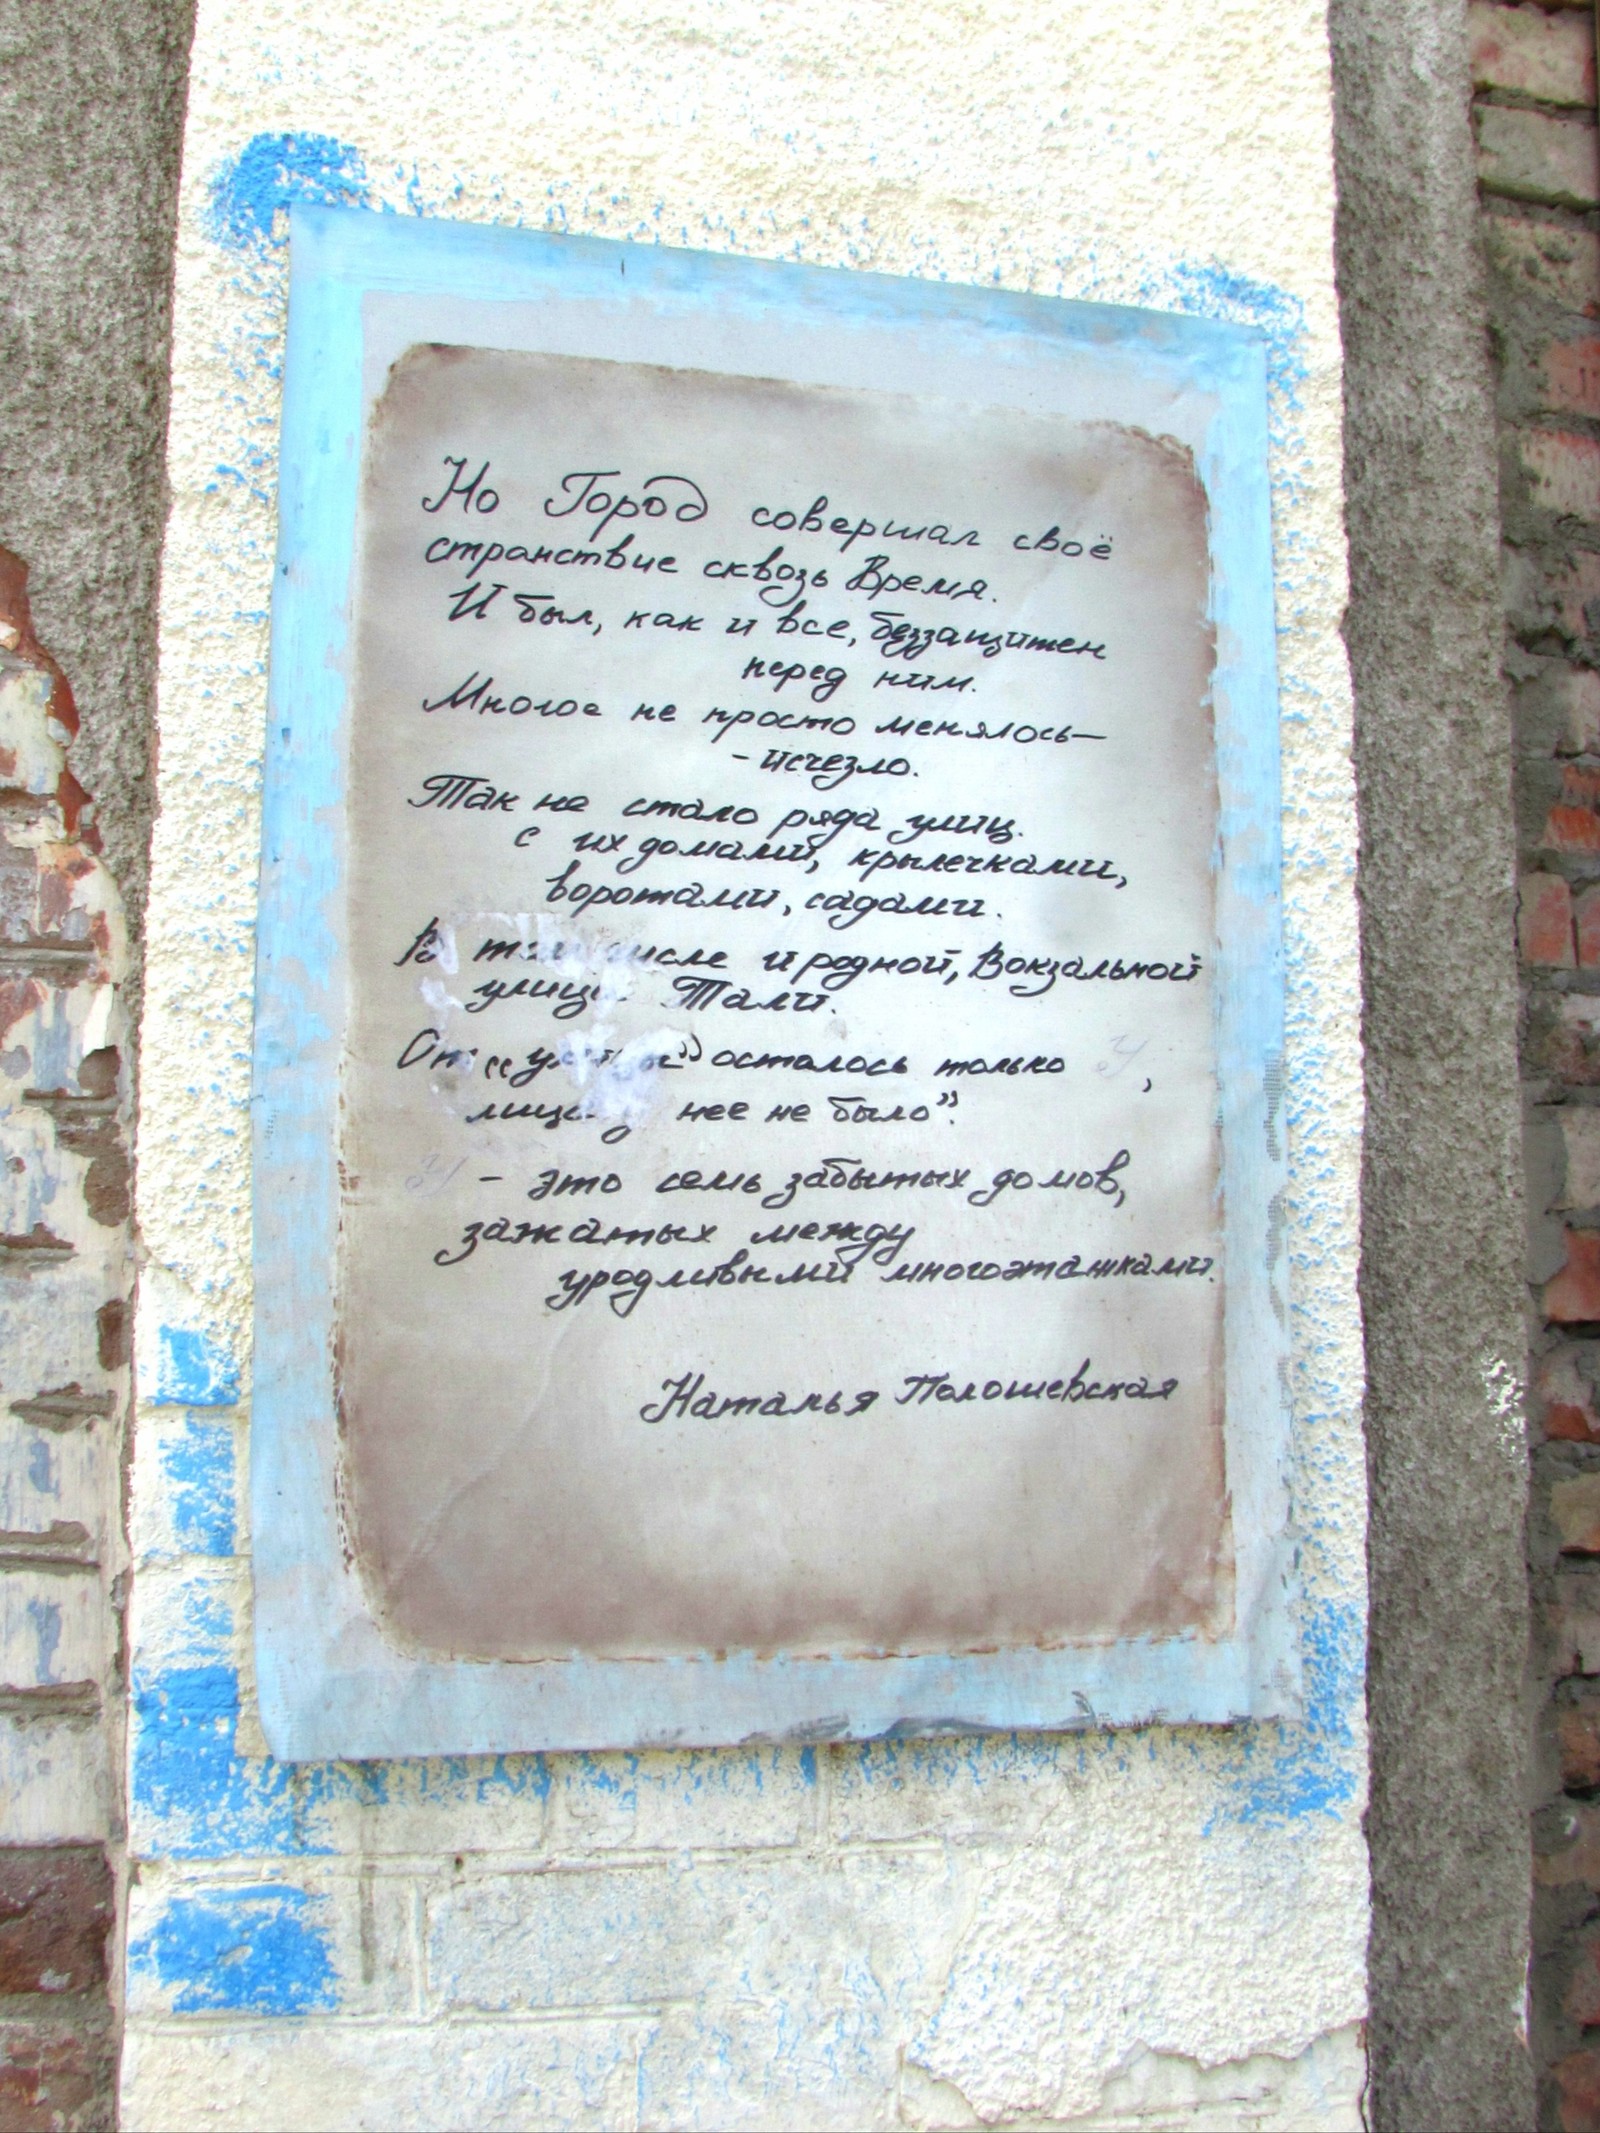 Но Город совершал своё
странствие сквозь Время.
И был, как и все, беззащитен
перед ним.
Многое не просто менялось—
-исчезло.
Так не стало ряда улиц
с их домами, крылечками,
воротами, садами.
В том числе и родной, Вокзальной
улицы Тали.
От „ осталось только У,
лица у нее не было”.
У - это семь забытых домов,
зажатых между
уродливыми многоэтажками.
Наталья Полошевская